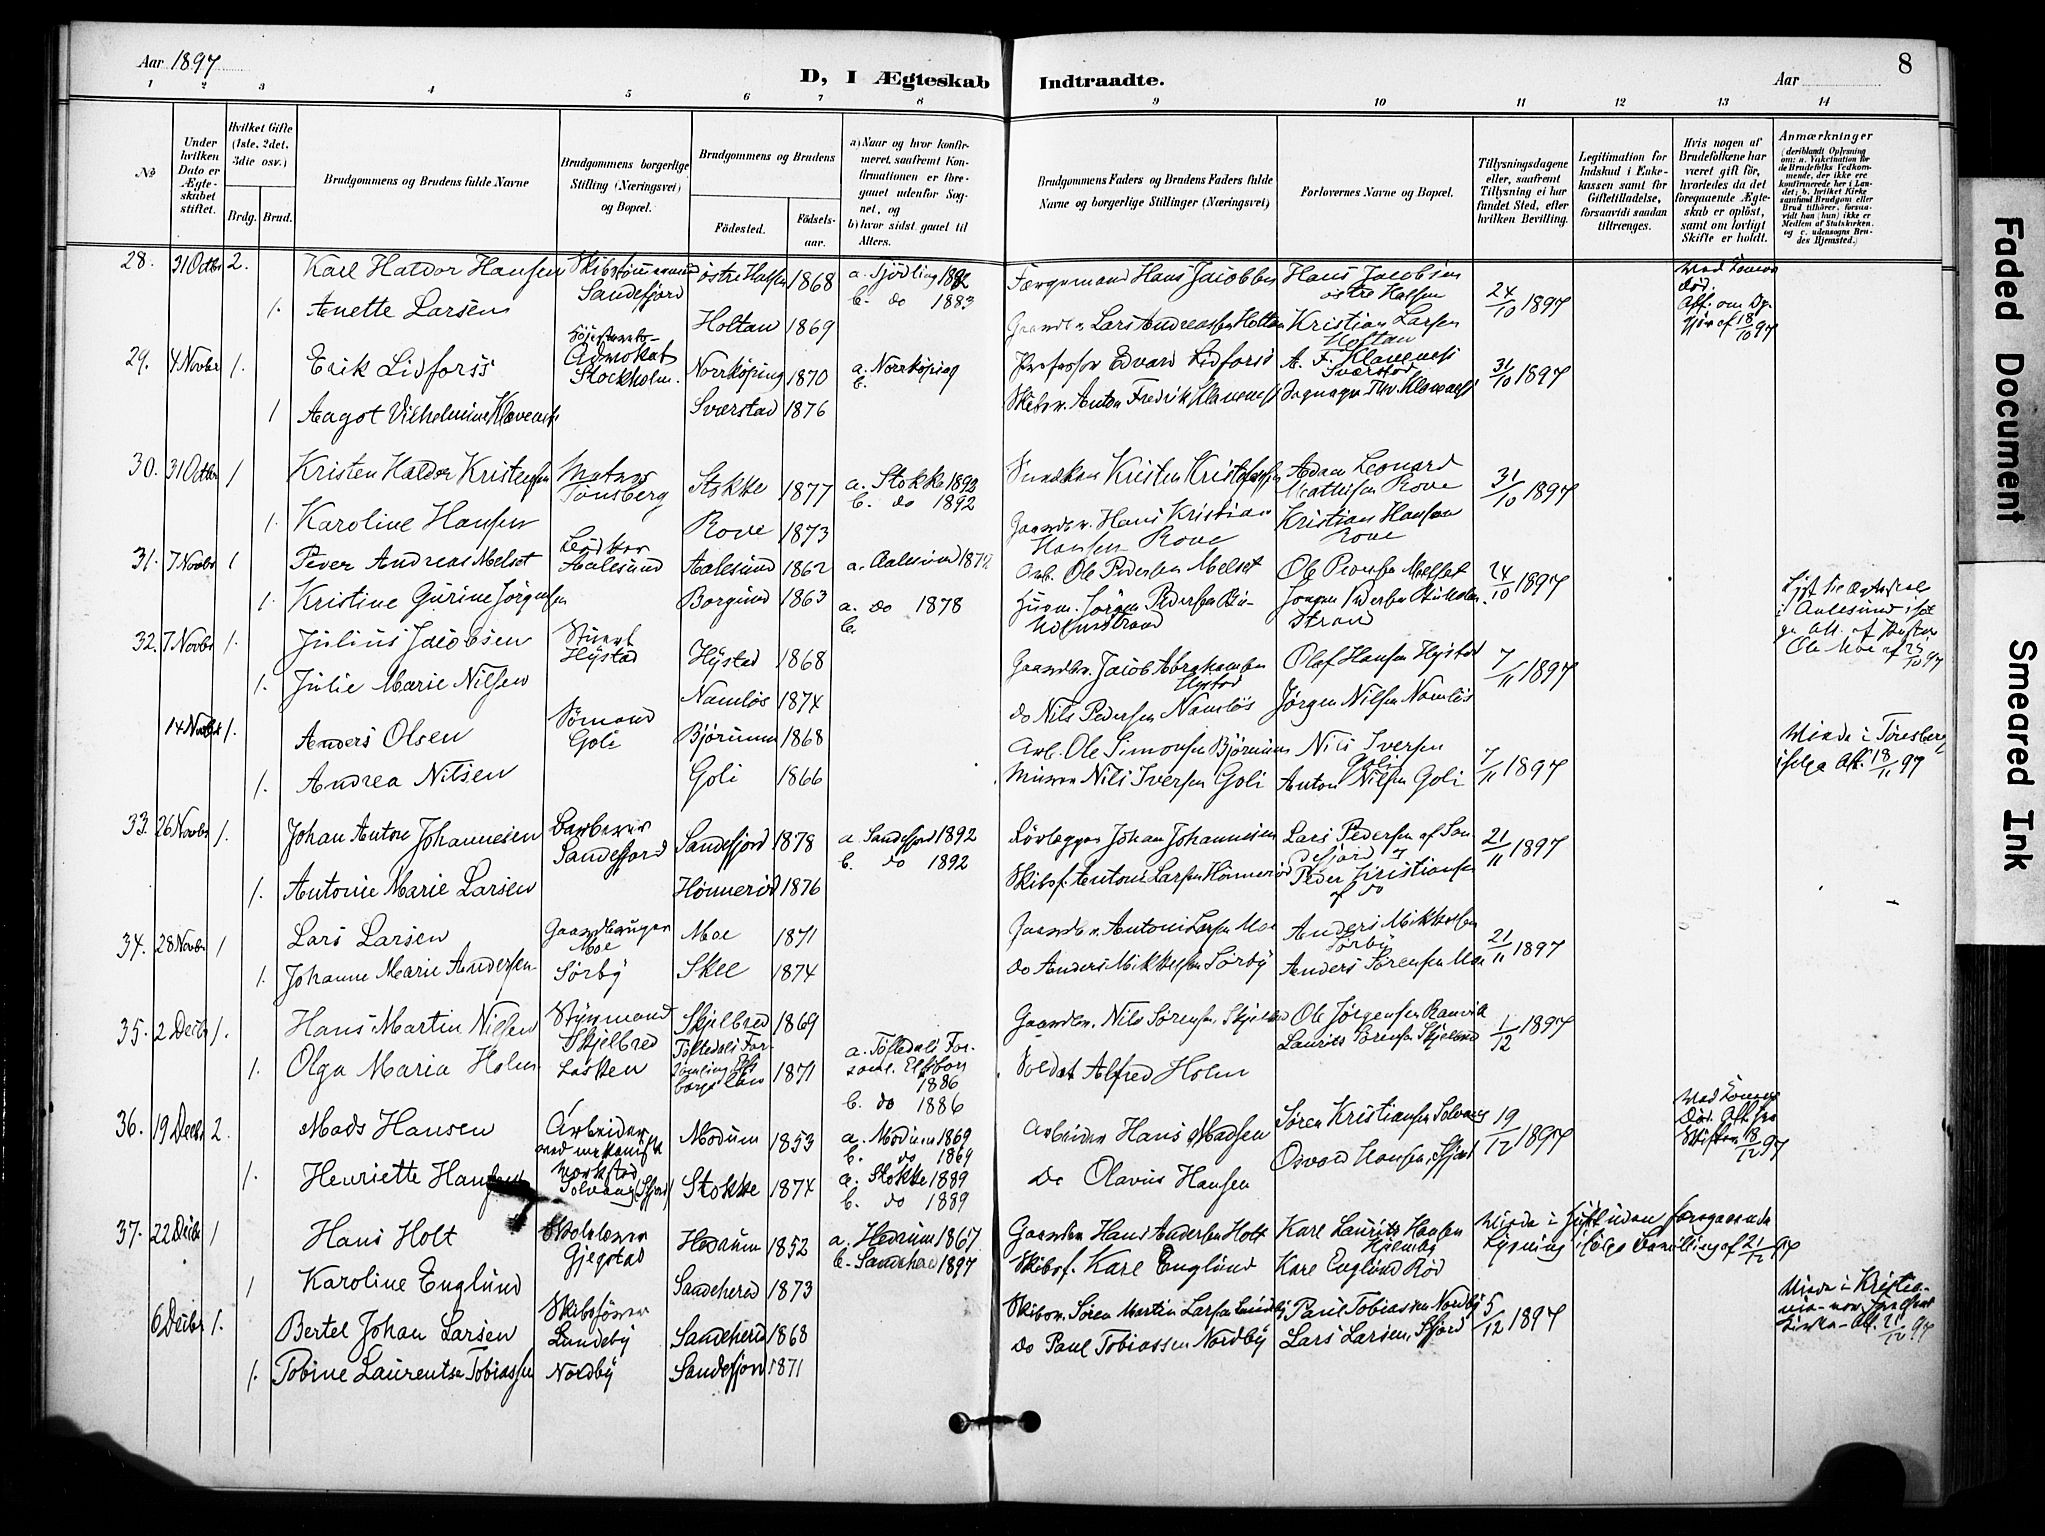 Aar 1897
D, I Ægteskab Indtraadte.
Aar
8
1 2 3 4 5 6 7 8 9 10 11 12 13 14
No
Under hvilken Dato er Ægteskabet stiftet.
Hvilket Gifte (1ste, 2det, 3die osv.)
Brdg. Brud.
Brudgommens og Brudens fulde Navne
Brudgommens borgerlige Stilling (Næringsvei) og Bopæl.
Brudgommens og Brudens
Fødested.
Fødselsaar.
a) Naar og hvor konfirmeret, saafremt Konfirmationen er foregaaet udenfor Sognet, og
b) hvor sidst gaaet til Alters.
Brudgommens Faders og Brudens Faders fulde Navne og borgerlige Stillinger (Næringsvei)
Forlovernes Navne og Bopæl.
Tillysningsdagene eller, saafremt Tillysning ei har fundet Sted, efter hvilken Bevilling.
Legitimation for Indskud i Enkekassen samt for Giftetilladelse, forsaavidt saadan tiltrænges.
Hvis nogen af Brudefolkene har været gift før, hvorledes da det foregaaende Ægteskab er opløst, samt om lovligt Skifte er holdt.
Anmærkninger
28. 31 Octbr 2. Karl Haldor Hansen Sandefjord østre Halsen 1868 a. Tjødling 1882 b. do 1883 Færgemand Hans Jacobsen Hans Jacobsen østre Halsen 24/10 1897
1. Anette Larsen Holtan 1869 Gaardbr. Lars Andreassen Holtan Kristian Larsen Holtan
29. 4 Novbr 1. Erik Lidforss Advokat Stockholm. Norrköping 1870 a. Norrköping b. Professor Edvard Lidforss A. F. Klaveness Sværstad 31/10 1897
1 Aagot Vilhelmine Klaveness Sværstad 1876 Skibsr. Anton Fredrik Klaveness
30. 31 Octbr 1 Kristen Haldor Kristensen Matros Tønsberg Stokke 1877 a. Stokke 1892 b. do 1892 Adam Leonard Mathisen Rove 31/10 1897
1. Karoline Hansen Rove 1873 Gaardbr. Hans Kristian Hansen Rove Kristian Hansen Rove
31. 7 Novbr 1 Peder Andreas Melset Bødker Aalesund Aalesund 1862 a. Aalesund Arb. Ole Pedersen Melset Ole Pedersen Melset 24/10 1897
1. Kristine Gurine Jørgensen Borgund 1863 a. do 1878 b. Husm. Jørgen Pedersen
32. 7 Novbr 1. Julius Jacobsen Hystad Hystad 1868 Gaardbr. Jacob Abrahamsen Hystad Olaf Hansen Hystad 7/11 1897
1. Julie Marie Nilsen Namløs 1874 do Nils Pedersen Namløs Jørgen Nilsen Namløs
14 Novbr 1. Anders Olsen Sømand Goli Bjørnum 1868 Arb. Ole Simonsen Bjørnum Nils Iversen Goli 7/11 1897 Viede i Tønsberg ifølge Att. 18/11 97
1. Andrea Nilsen Goli 1866 Murer Nils Iversen Goli Anton Nilsen Goli
33. 26 Novbr 1. Johan Anton Johannesen Barberer Sandefjord Sandefjord 1878 a. Sandefjord 1892 b. do 1892 Rørlægger Johan Johannesen Lars Pedersen af Sandefjord 21/11 1897
1. Antonie Marie Larsen Hønnerød 1876 Skibsf. Antoni Larsen Hønnerød Peder Kristiansen af do
34. 28 Novbr 1 Lars Larsen Gaardbruger Moe Moe 1871 Gaardbr. Antoni Larsen Moe Anders Mikkelsen Sørby 21/11 1897
1. Johanne Marie Andersen Sørby Skee 1874 do Anders Mikkelsen Sørby Anders Sørensen Moe
35. 2 Decbr 1. Hans Martin Nilsen Styrmand Skjelbred Skjelbred 1869 Gaardbr. Nils Sørensen Skjelbred Ole Jørgensen Ranvik 1/12 1897
1. Olga Maria Holm 1871 1886 b. do 1886 Soldat Alfred Holm Laurits Sørensen Skjelbred
36. 19 Decbr 2. Mads Hansen Arbeider Modum 1853 a. Modum 1869 b. do 1869 Arbeider Hans Madsen Søren Kristiansen Solvang 19/12 1897
1. Henriette Hansen Stokke 1874 a. Stokke 1889 b. do 1889 Do Olavus Hansen Osvald Hansen, Sfjord
37. 22 Decbr 1 Hans Holt Skolelærer Gjegstad Hedrum 1852 a. Hedrum 1867 b. Sandeherred 1897 Gaardbr. Hans Andersen Holt Karl Laurits Hansen
1 Karoline Englund Sandeherred 1873 Skibsf. Karl Englund Karl Englund Rød
6 Decbr 1. Bertel Johan Larsen Skibsfører Lundeby Sandeherred 1868 Skibsr. Søren Martin Larsen Lundeby Paul Tobiassen Nordby 5/12 1897
1. Tobine Laurentse Tobiassen Nordby Sandefjord 1871 do Paul Tobiassen Nordby Lars Larsen, Sfjord
Faded Document
Smeared Ink